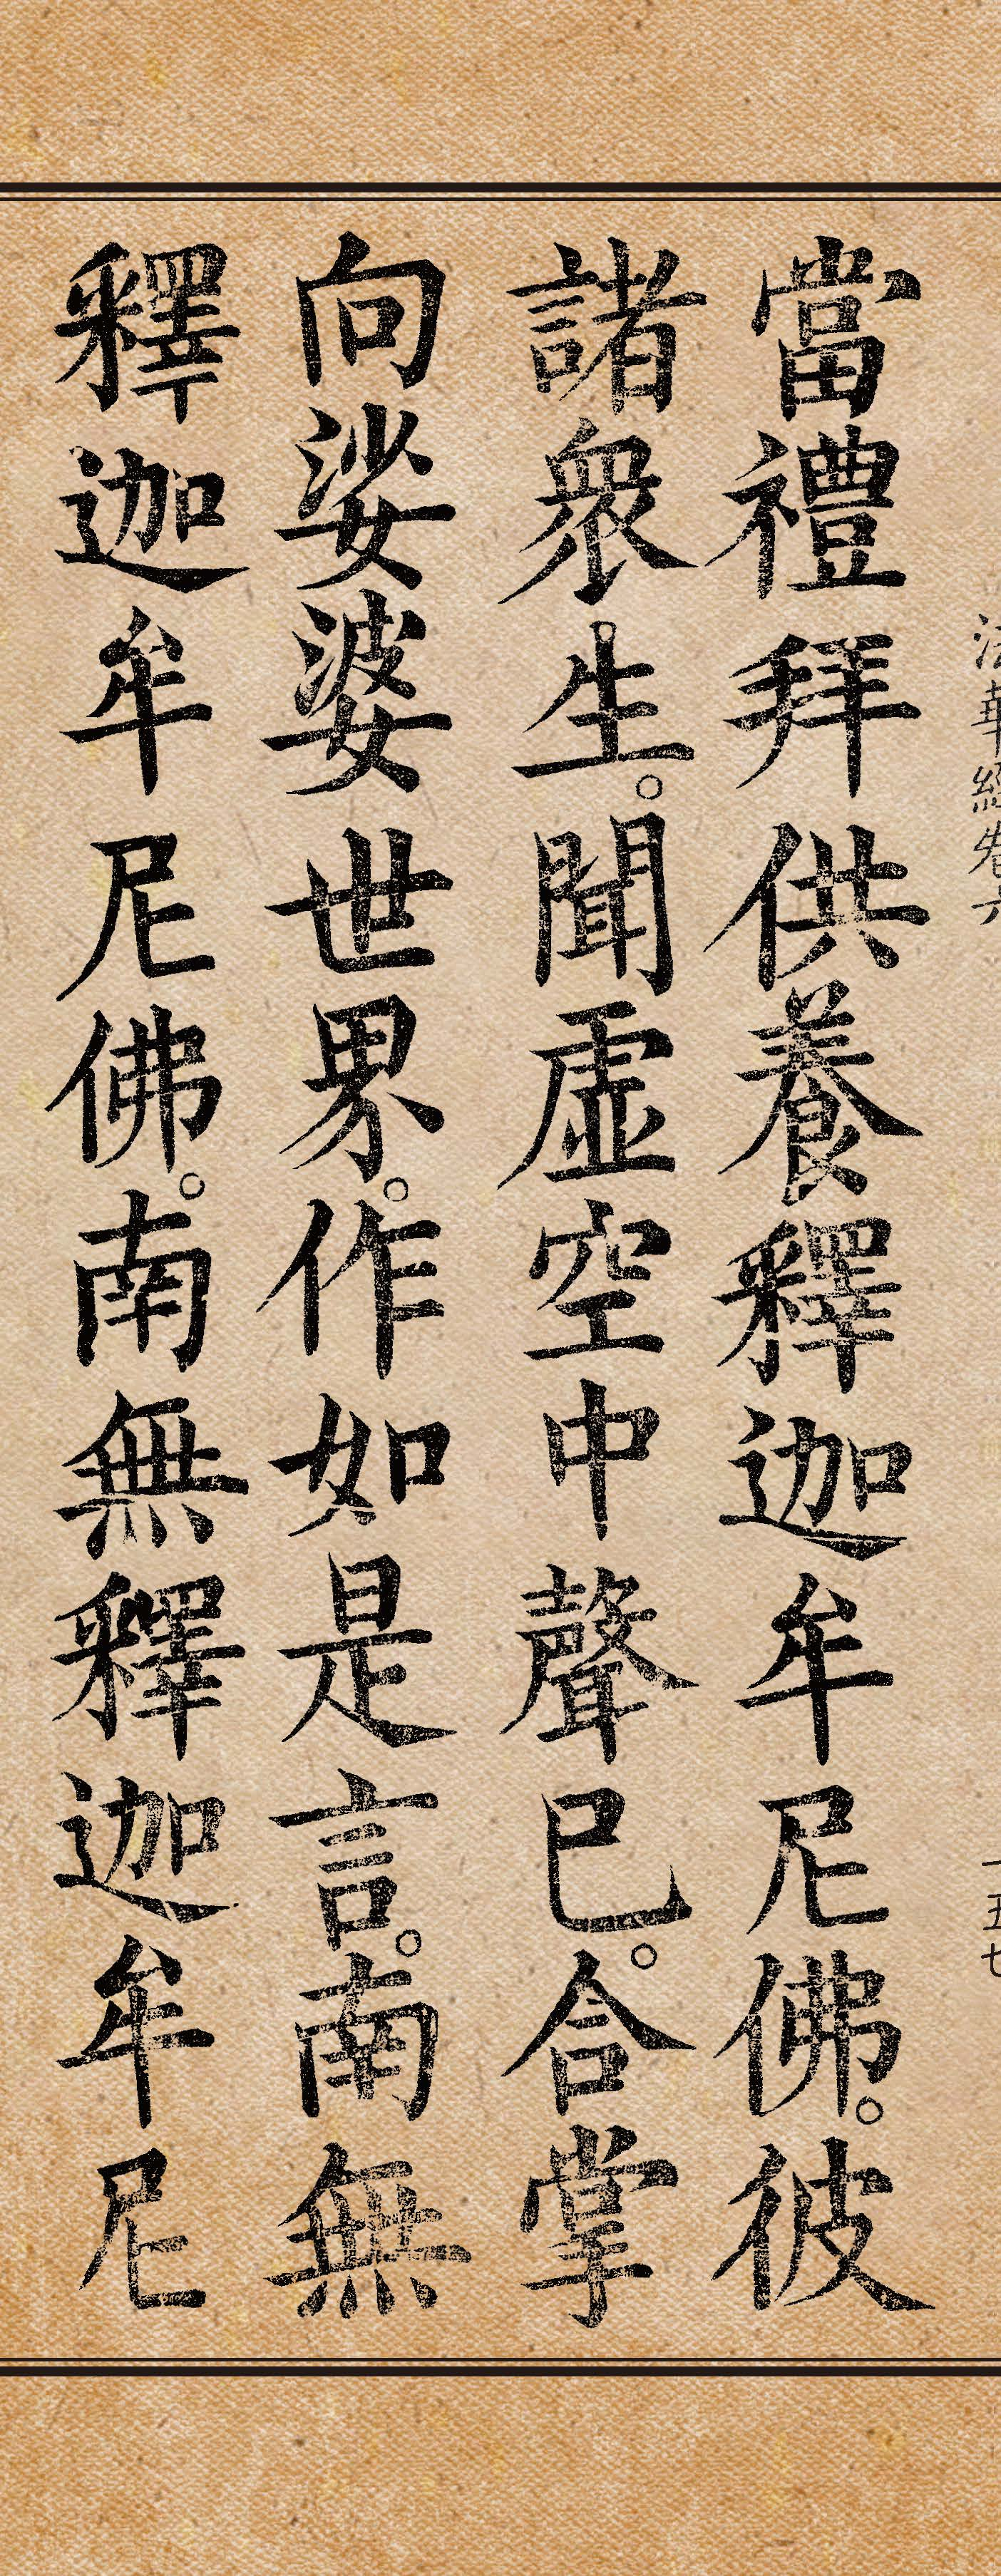 法華經卷六 一五七
當禮拜供養釋迦牟尼佛。彼
諸衆生。聞虛空中聲已。合掌
向娑婆世界。作如是言。南無
釋迦牟尼佛。南無釋迦牟尼